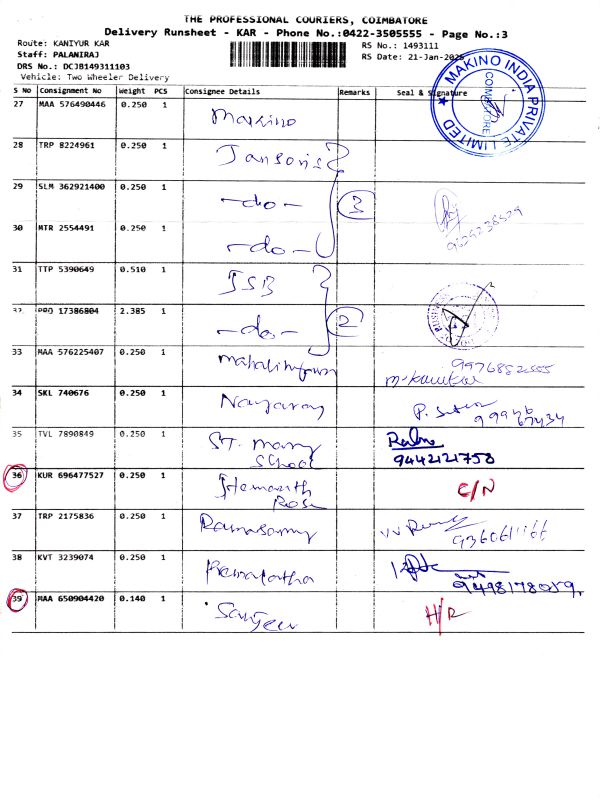 THE PROFESSIONAL COURIERS, COIMBATORE
Delivery Runsheet - KAR - Phone No.:0422-3505555 - Page No.:3
Route: KANIYUR KAR
RS No.: 1493111
Staff: PALANIRAJ
RS Date: 21-Jan-2025
DRS No.: DCJB149311103
Vehicle: Two Wheeler Delivery
MAKINO INDIA PRIVATE LIMITED
COIMBATORE
S No Consignment No Weight PCS Consignee Details Remarks Seal & Signature
27 MAA 576490446 0.250 1 Makino
28 TRP 8224961 0.250 1 Jansons
29 SLM 362921400 0.250 1 -do- 3
9629238529
30 MTR 2554491 0.250 1 -do-
31 TTP 5390649 0.510 1 JSB
32 PRO 17386804 2.385 1 -do- 2
33 MAA 576225407 0.250 1 9976852555
34 SKL 740676 0.250 1 Nagaraj P.
35 TVL 7890849 0.250 1 ST. Mary School
9442121758
36 KUR 696477527 0.250 1 Hemanth Rose C/N
37 TRP 2175836 0.250 1 Ramasamy
38 KVT 3239074 0.250 1 Premalatha
9498178059.
39 MAA 650904420 0.140 1 Sanjeev H/R